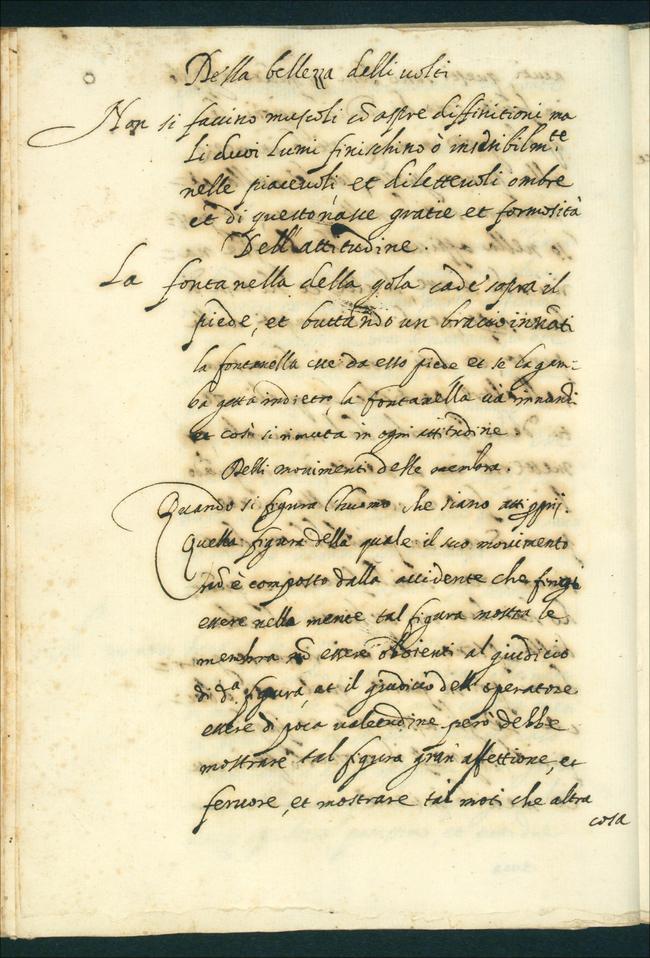 Della bellezza delli uolti
Non si faccino muscoli cõ aspre diffinitioni ma
li duoi Lumi finischino ò insensibilm.te
nelle piaceuoli et diletteuoli ombre
et di questo nasce gratie et formosità
Dell'attitudine.
La fontanella della gola cade sopra il
piede, et buttando un braccio innãti
la fontanella esce da esso piede et se la gam-
ba getta indietro, la fontanella uà innandi
et così si rimuta in ogni attitudine
Delli mouimenti delle membra.
Quando si figura l'huomo che siano atti proprij.
Quella figura della quale il suo mouimento
nõ è composto dalla accidente che finge
essere nella mente tal figura mostra le
membra nõ essere obbienti al giudicio
di d.a figura, et il giudicio dell'operatore
essere di poca ualetudine però debbe
mostrare tal figura gran affettione, et
feruore, et mostrare tai moti che altra
cosa